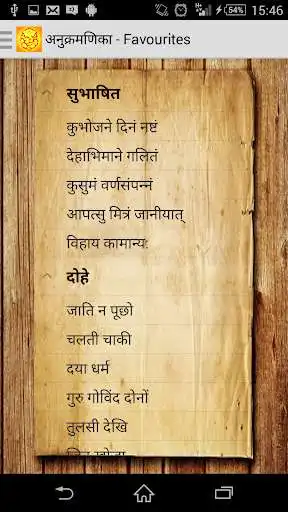 54% 15:46
अनुक्रमणिका - Favourites
सुभाषित
कुभोजने दिनं नष्टं
देहाभिमाने गलितं
कुसुमं वर्णसंपन्नं
आपत्सु मित्रं जानीयात्
विहाय कामान्यः
दोहे
जाति न पूछो
चलती चाकी
दया धर्म
गुरु गोविंद दोनों
तुलसी देखि